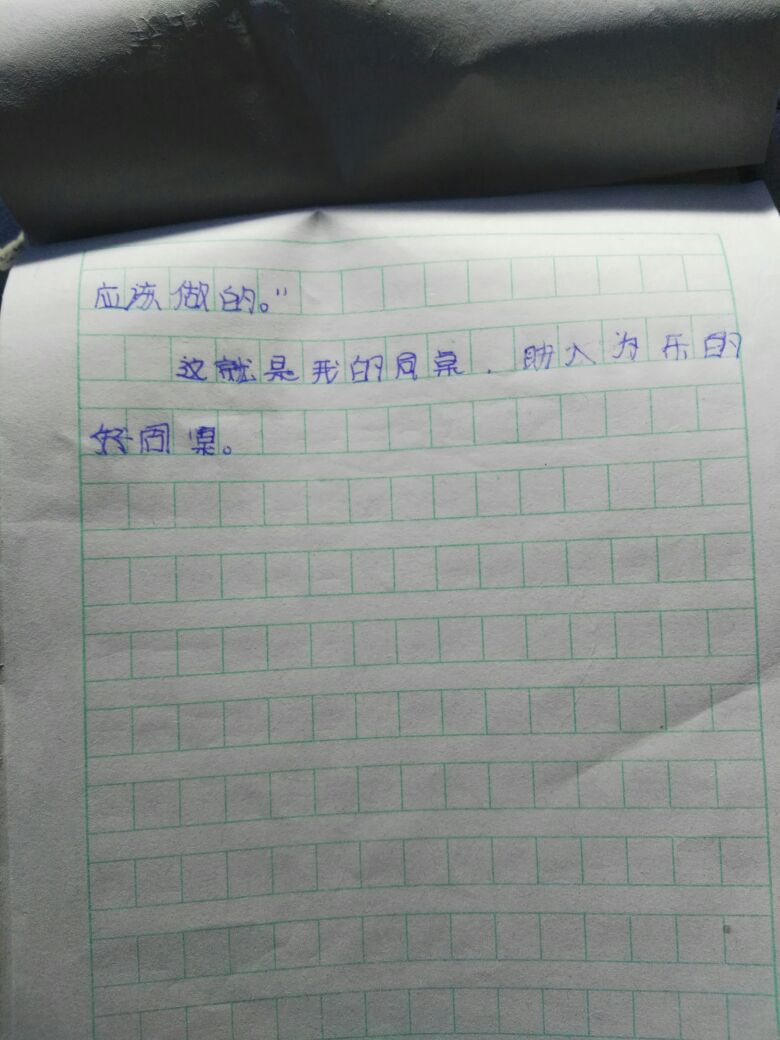 应该做的。"
这就是我的同桌，助人为乐的
好同桌。